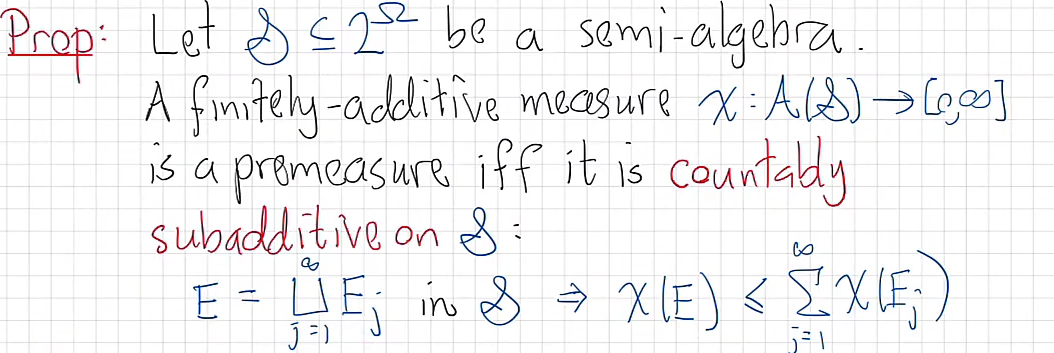 Prop: Let 𝒮 ⊆ 2^Ω be a semi-algebra.
A finitely-additive measure χ : A(𝒮) → [0,∞]
is a premeasure iff it is countably
subadditive on 𝒮 :
E = ⨆_{j=1}^∞ E_j in 𝒮 ⇒ χ(E) ≤ ∑_{j=1}^∞ χ(E_j)